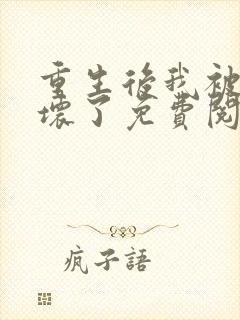 重生後我被
壞了免費閱
疯子語